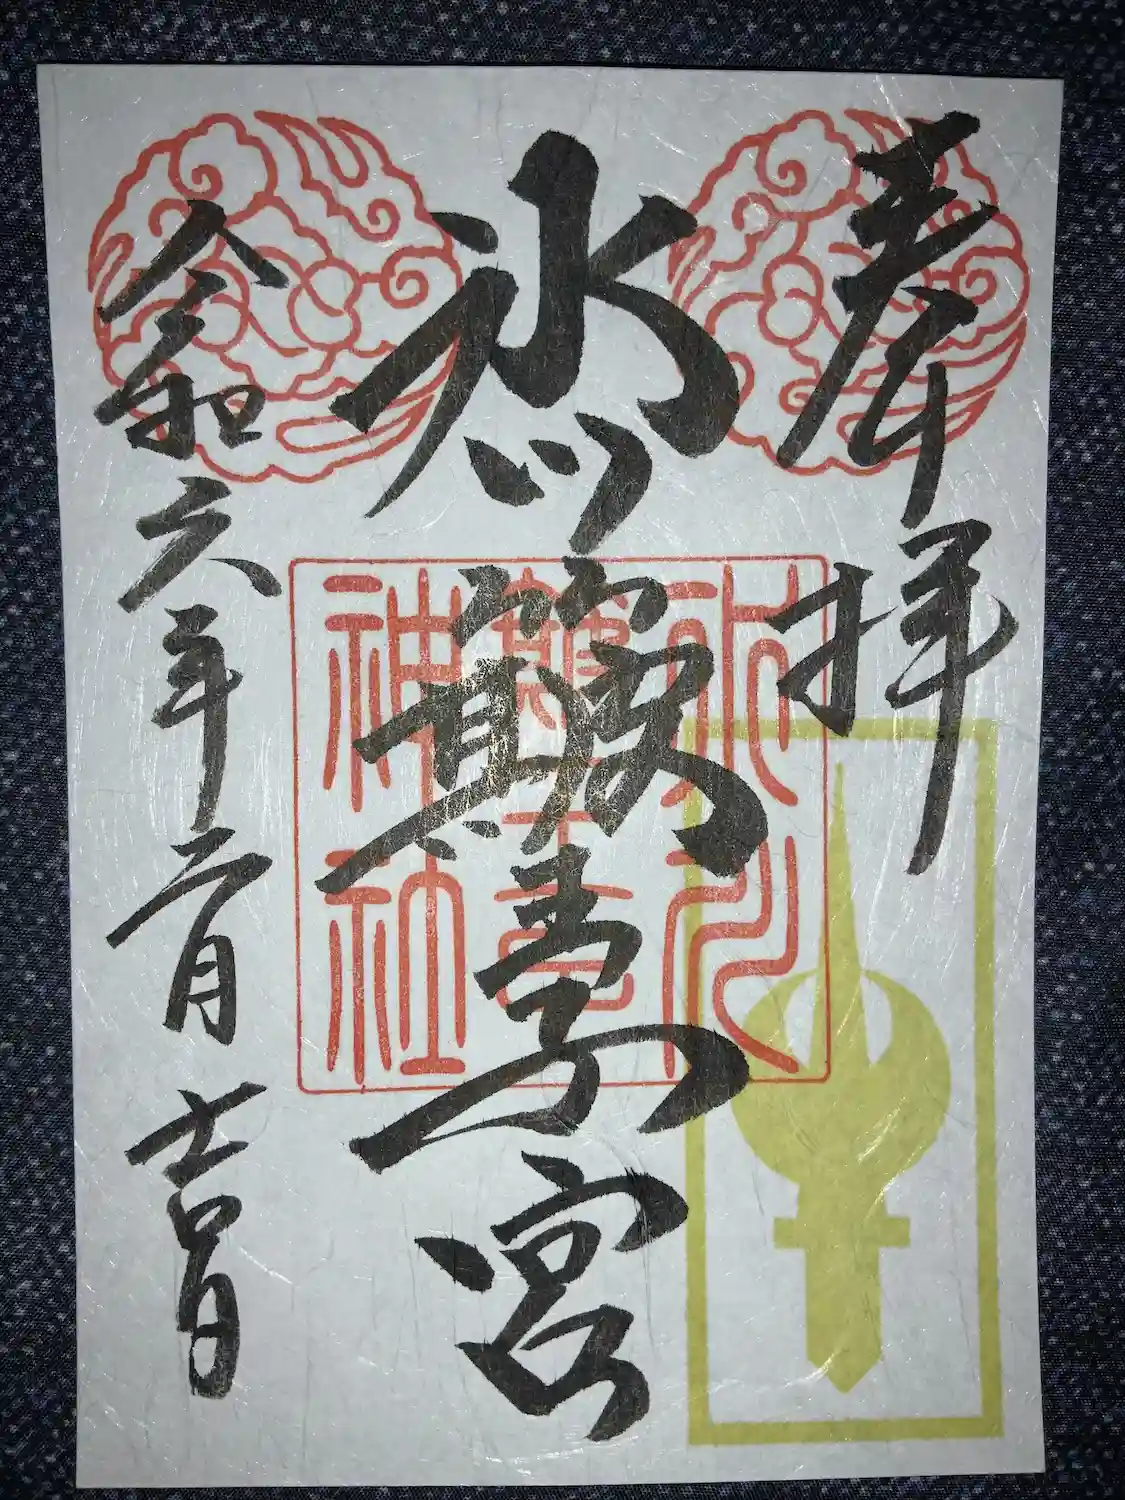 奉拝
氷川簸王子宮
令和六年二月吉日
氷川
神社